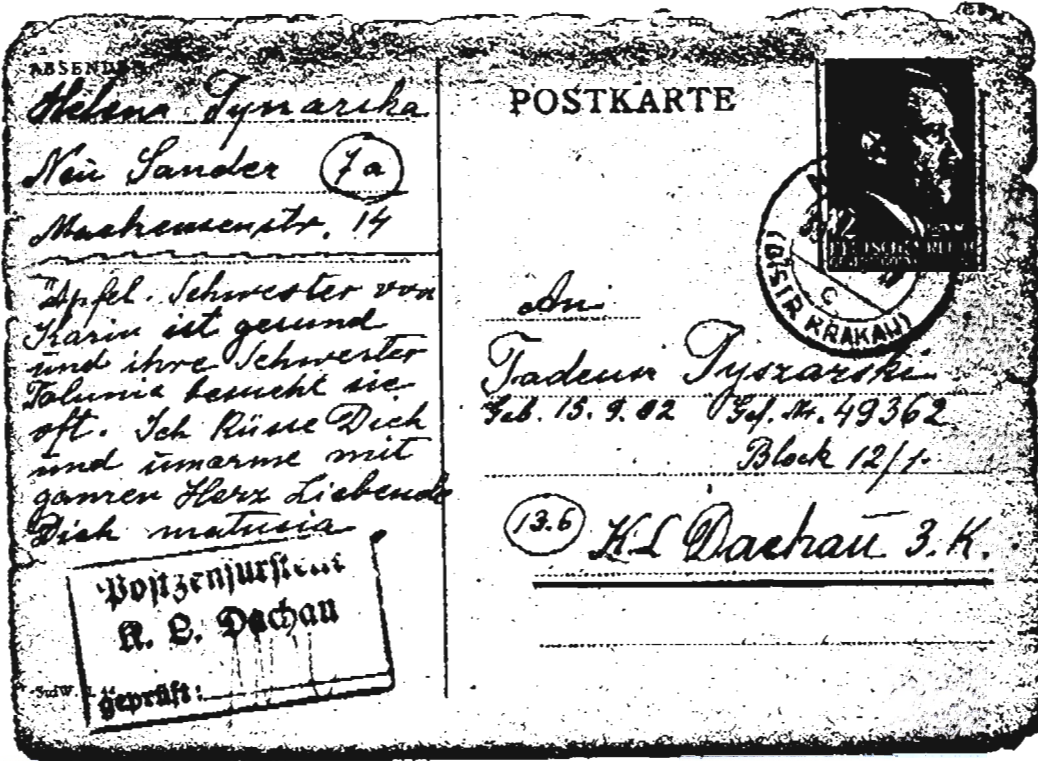 ABSENDER
Helena Tymarska
Neu Sander 7a
Mackensenstr. 14
Äpfel. Schwester von
Karin ist gesund
und ihre Schwester
Tolunia besucht sie
oft. Ich Küsse Dich
und umarme mit
ganzen Herz Liebende
Dich matusia
Postzensurstelle
K. L. Dachau
geprüft:
POSTKARTE
(DISTR KRAKAU)
C
An
Tadeusz Tyszarski
Geb. 15. 9. 02 Gef. Nr. 49362
Block 12/1.
13.b K.L Dachau 3. K.